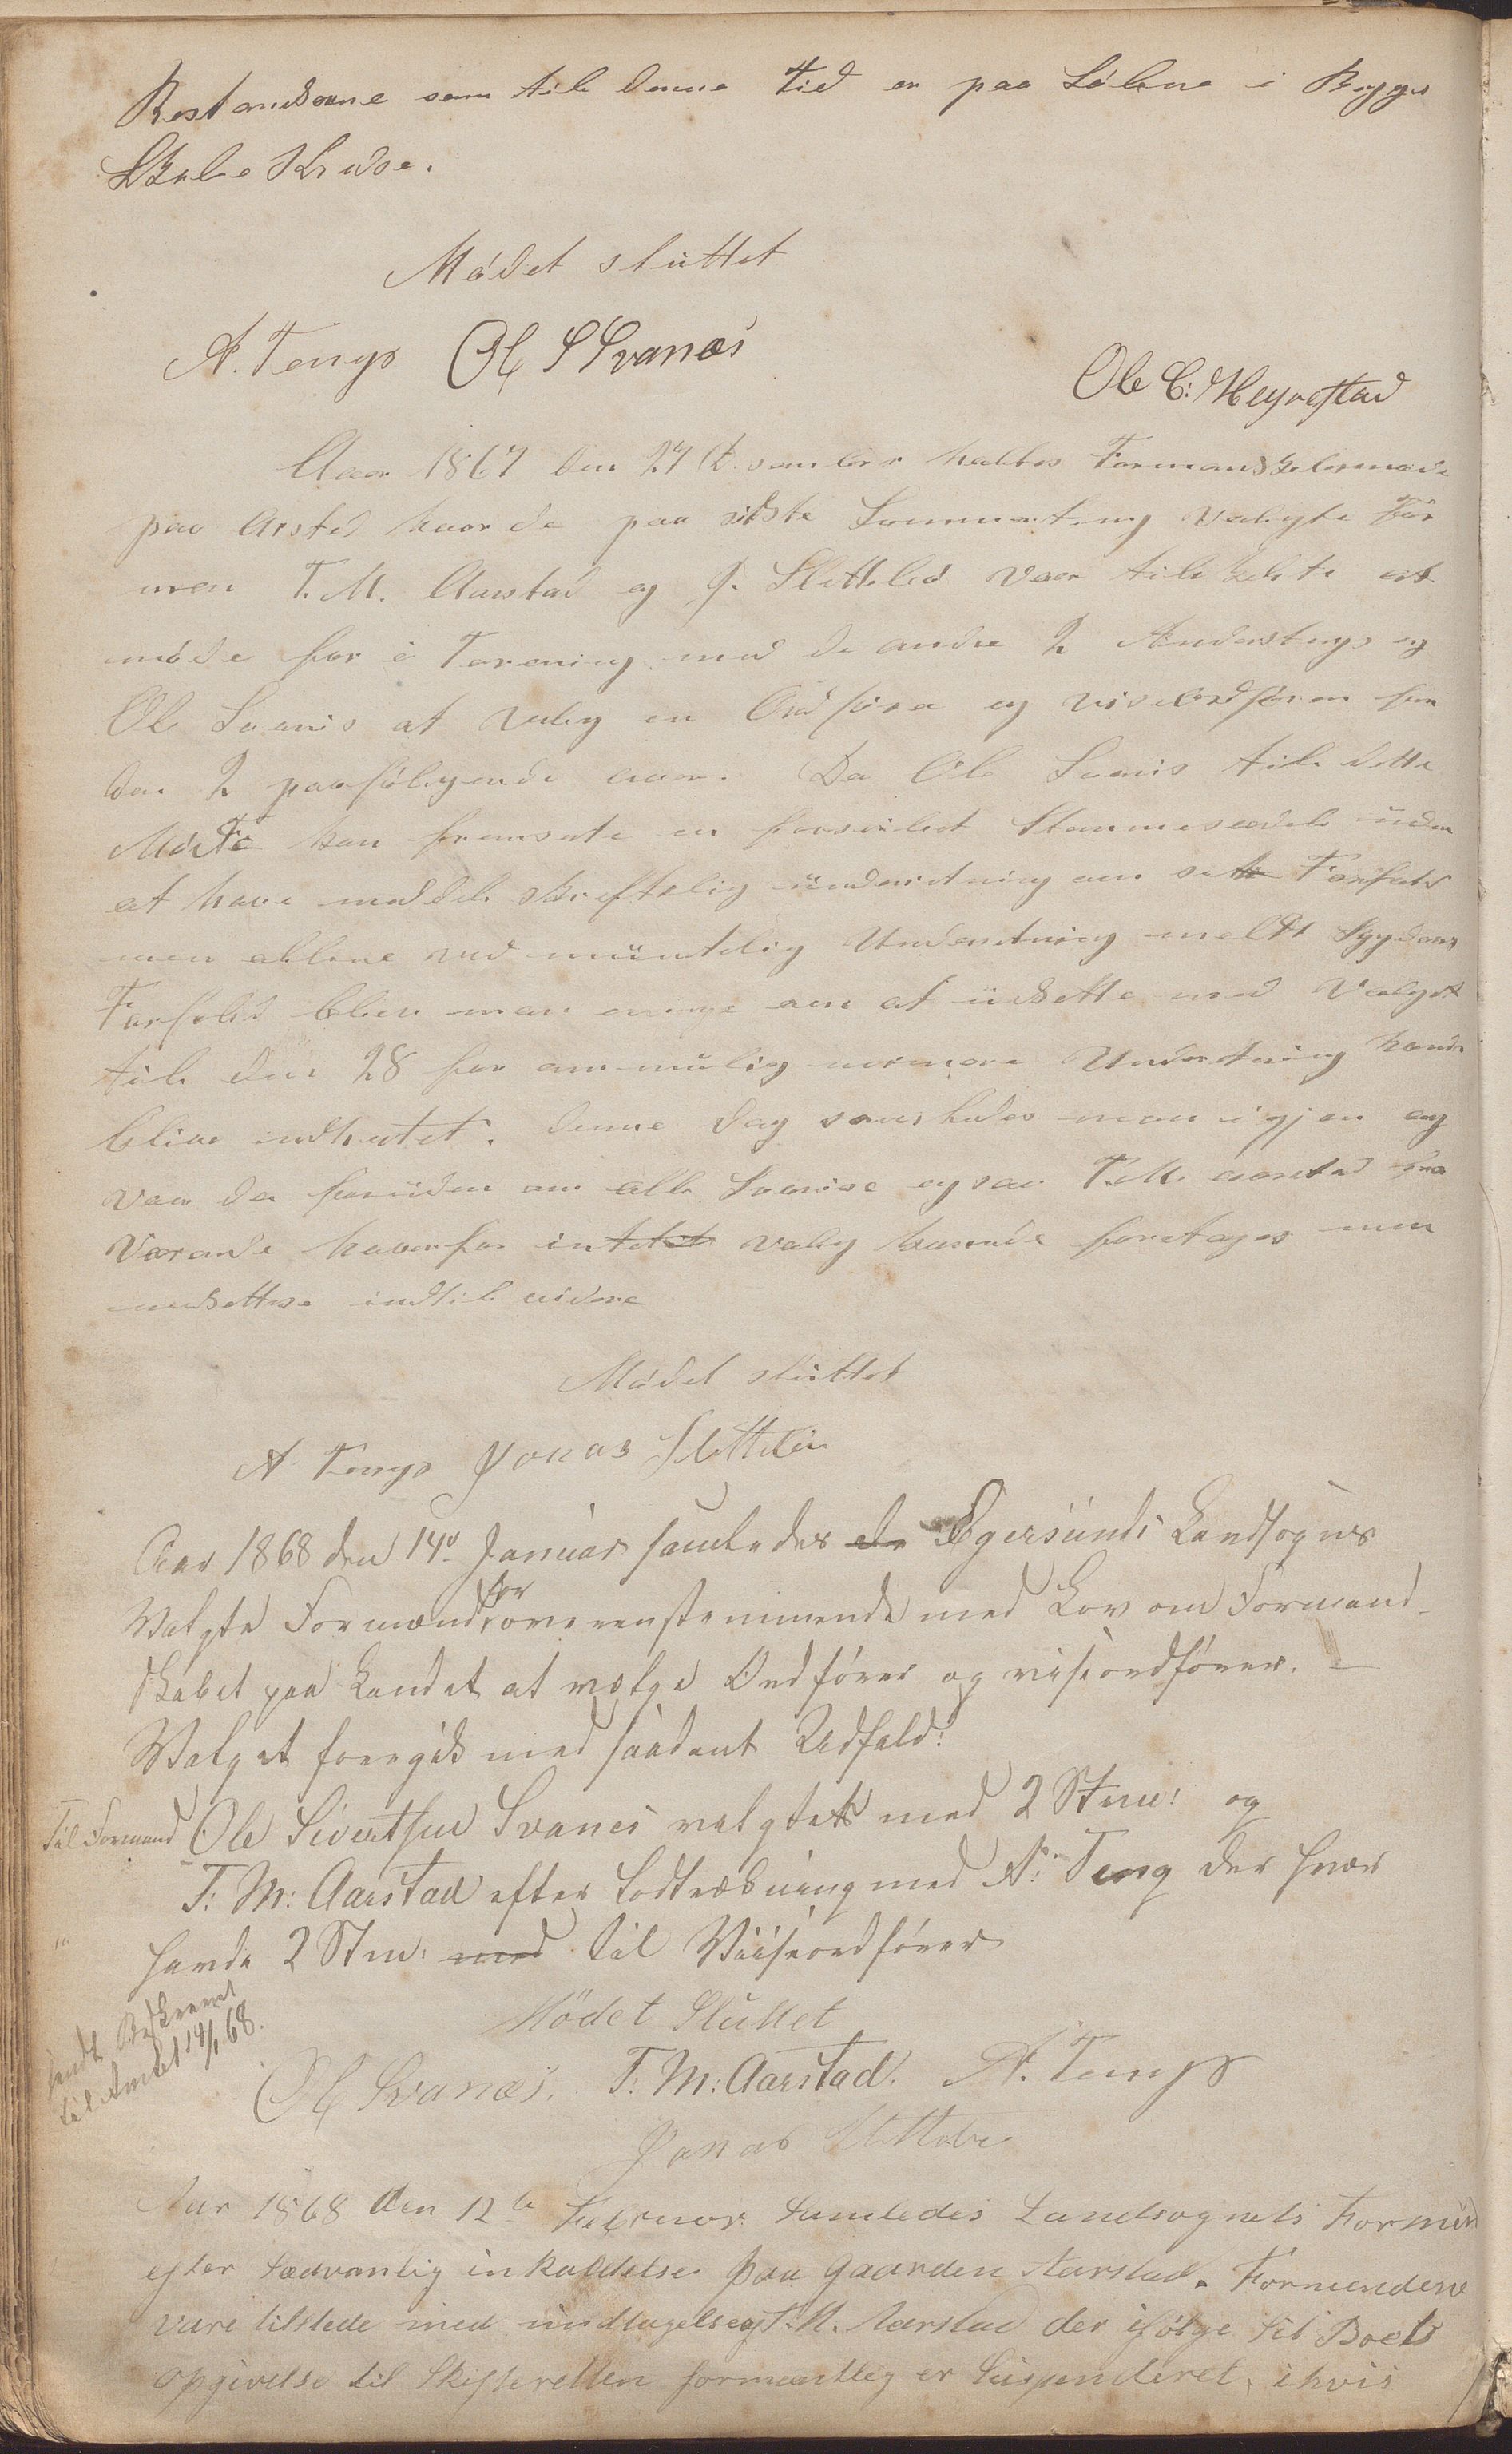 Restandserne som til denne Tid er paa Lølene i Begge
Skole Kredse.
Mødet sluttet
A. Tengs Ole S Svanæs
Ole C: Hegrestad
Aar 1867 den 27 Desember holtes Formandskabsmøde
paa Arstad hvor de paa sidste Sommerting Valgte For
men T. M. Aarstad og J. Slettebø var tilsagte at
møde for i Forening med de andre 2 Anders Tengs og
Ole Svanis at valg en Ordfører og viseordfører for
de 2 paafølgende aar. Da Ole Svanis til dette
Møde kun fremsente en forsiglet Stemmesedel uden
at have meddelt skreftelig underretning om sit Forfald
men allene ved muntelig Underretning meldt Sygdoms
Forfald blev man enige om at udsette med Valget
til den 28 for om mulig nermere Underretning kunde
blive indhentet. denne Dag samledes man igjen og
var da foruden om Ole Svanise ogsaa T.M. aarstad fra
Værende hvorfor intet valg kunde foretages men
udsettese indtil videre
Mødet sluttet
A Tengs Jonas Slettebø
Aar 1868 den 14de Januar samledes de Egersunds Landsogns
Valgte Formænd, for overenstemmende med Lov om Formand-
skabet paa Landet at vælge Ordfører og viseordfører. –
Valget foregik med saadant Udfald:
Til Formand Ole Sivertsen Svanes valgtes med 2 Stem: og
T: M: Aarstad efter Lodtrækning med A: Teng der hver
havde 2 Stem: med til Viiseordfører
Mødet Sluttet
sendt Beskrevet
til Amtet 14/1 68.
Ole Svanæs. T: M: Aarstad. A. Tengs
Jonas Slettebø
Aar 1868 den 12te Februar samledes Landsognets Formen
efter sædvanlig inkaldelse paa Gaarden Aarstad. Formendene
vare tilstede med undtagelse af T. M. Aarstad der ifølge sit Boets
opgivelse til Skifteretten formentlig er Suspenderet, i hvis